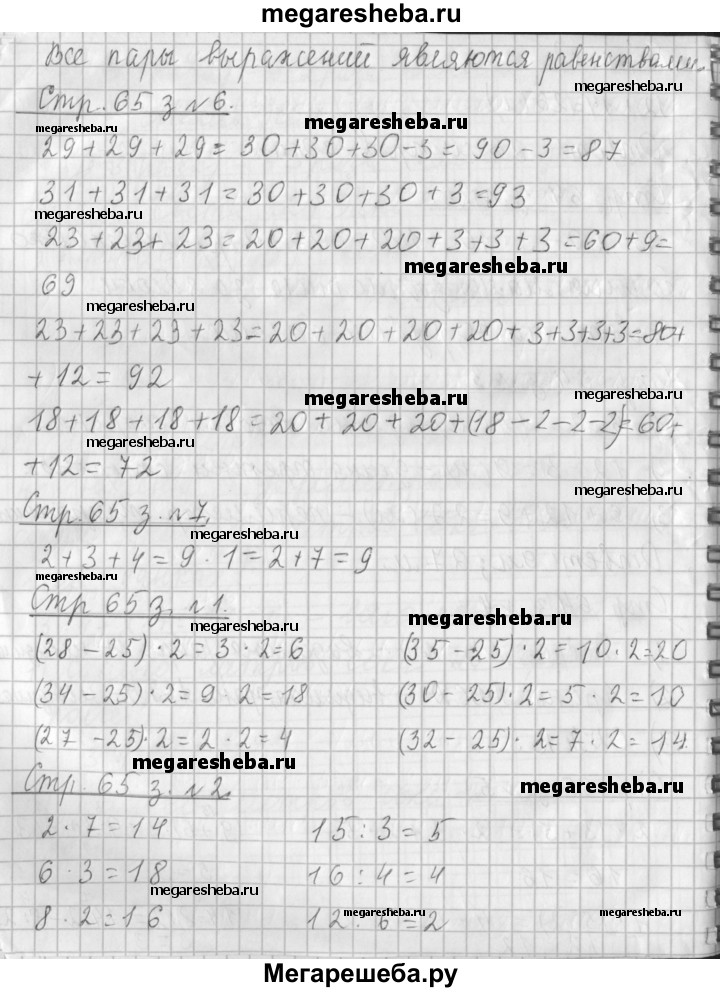 megaresheba.ru
Все пары выражений являются равенствами.
megaresheba.ru
Стр. 65 з №6.
megaresheba.ru
megaresheba.ru
29+29+29=30+30+30-3=90-3=87
31+31+31=30+30+30+3=93
megaresheba.ru
23+23+23=20+20+20+3+3+3=60+9=
megaresheba.ru
69
megaresheba.ru
23+23+23+23=20+20+20+20+3+3+3+3=80+
+12=92
megaresheba.ru
megaresheba.ru
18+18+18+18=20+20+20+(18-2-2-2)=60+
megaresheba.ru
+12=72
megaresheba.ru
Стр. 65 з. №7.
megaresheba.ru
2+3+4=9·1=2+7=9
megaresheba.ru
Стр 65 з. №1.
megaresheba.ru
megaresheba.ru
(28-25)·2=3·2=6 (35-25)·2=10·2=20
megaresheba.ru
(34-25)·2=9·2=18 (30-25)·2=5·2=10
megaresheba.ru
(27-25)·2=2·2=4 (32-25)·2=7·2=14.
megaresheba.ru
Стр. 65 з. №2.
megaresheba.ru
2·7=14 15:3=5
6·3=18 16:4=4
megaresheba.ru
8·2=16 12:6=2
megaresheba.ru
megaresheba.ru
Мегарешеба.ру